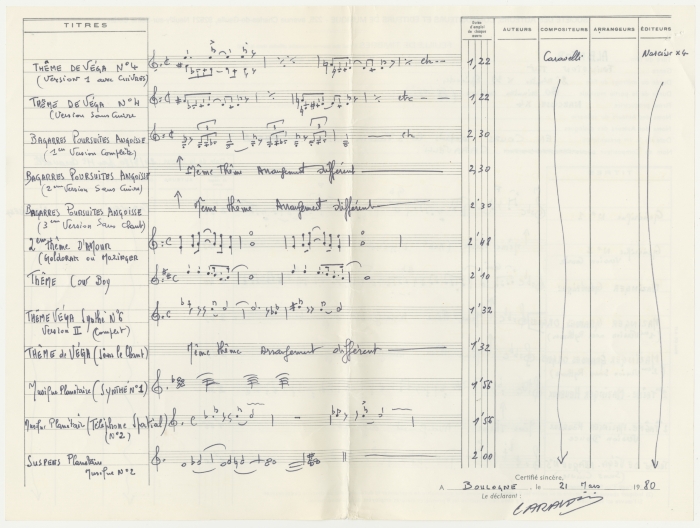 TITRES
Durée d'emploi de chaque œuvre AUTEURS COMPOSITEURS ARRANGEURS ÉDITEURS
THÈME DE VÉGA N°4 etc 1,22 Caravelli
(Version 1 avec Cuivres)
THÈME DE VÉGA N°4 etc 1,22
(Version Sans Cuivre
BAGARRES POURSUITES ANGOISSE etc 2,30
(1ère Version Complète)
BAGARRES POURSUITES ANGOISSE Même thème Arrangement différent 2,30
(2ème Version Sans Cuivre)
BAGARRES POURSUITES ANGOISSE Même thème Arrangement différent 2'30
(3ème Version Sans Chant)
2ème Thème D'AMOUR 2'48
(GOLDORAK ou MAZINGER
THÈME COW BOY 2'10
THÈME VÉGA Synthé N°6 1'32
Version II (Complet)
THÈME de VÉGA (Sans le Chant) Même thème Arrangement différent 1'32
Musique Planétaire (SYNTHÉ N°1) 1'56
Musique Planétaire (Téléphone Spatial) 1'56
(N°2)
SUSPENS Planétaire 2'00
Musique N°2
Certifié sincère,
A BOULOGNE, le 21 Mars 1980
Le déclarant :
CARAVELLI